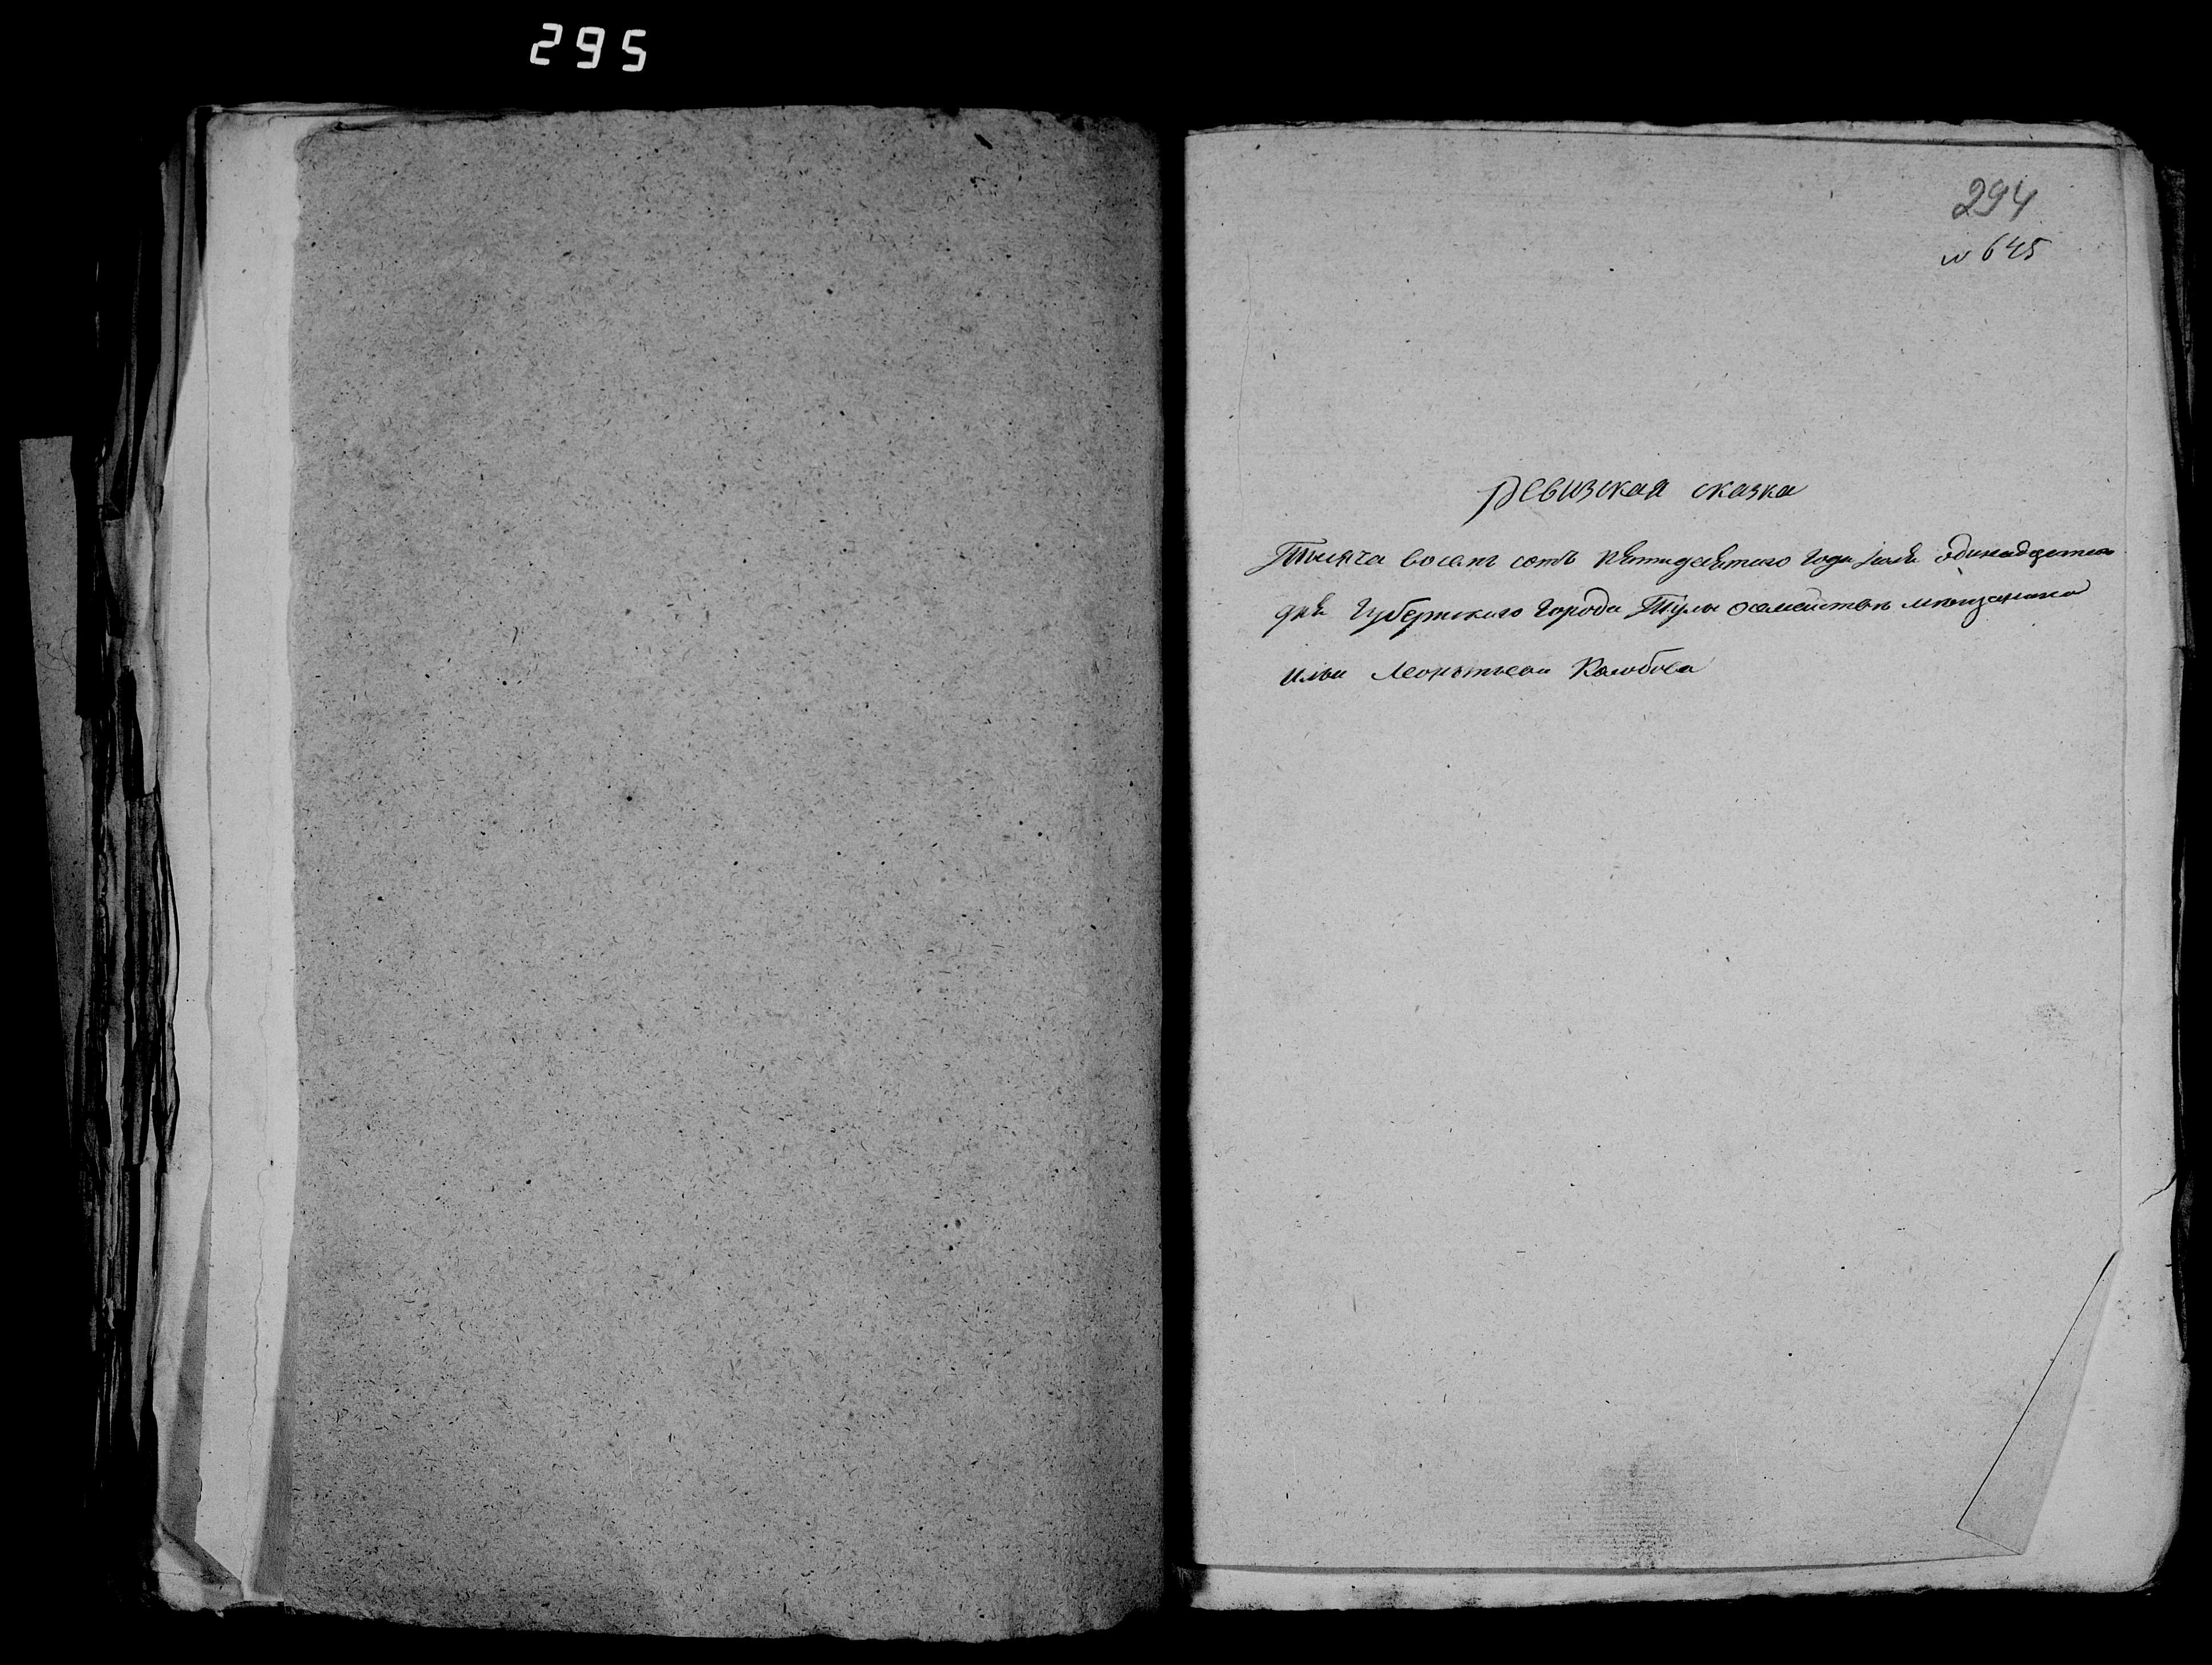 295
294
№ 645
Ревизская сказка
Тысяча восемь сотъ пятидесятого года июля одинадцатого
дня Губернского города Тулы осемействе мещанина
Ильи Леонтьева Колобова